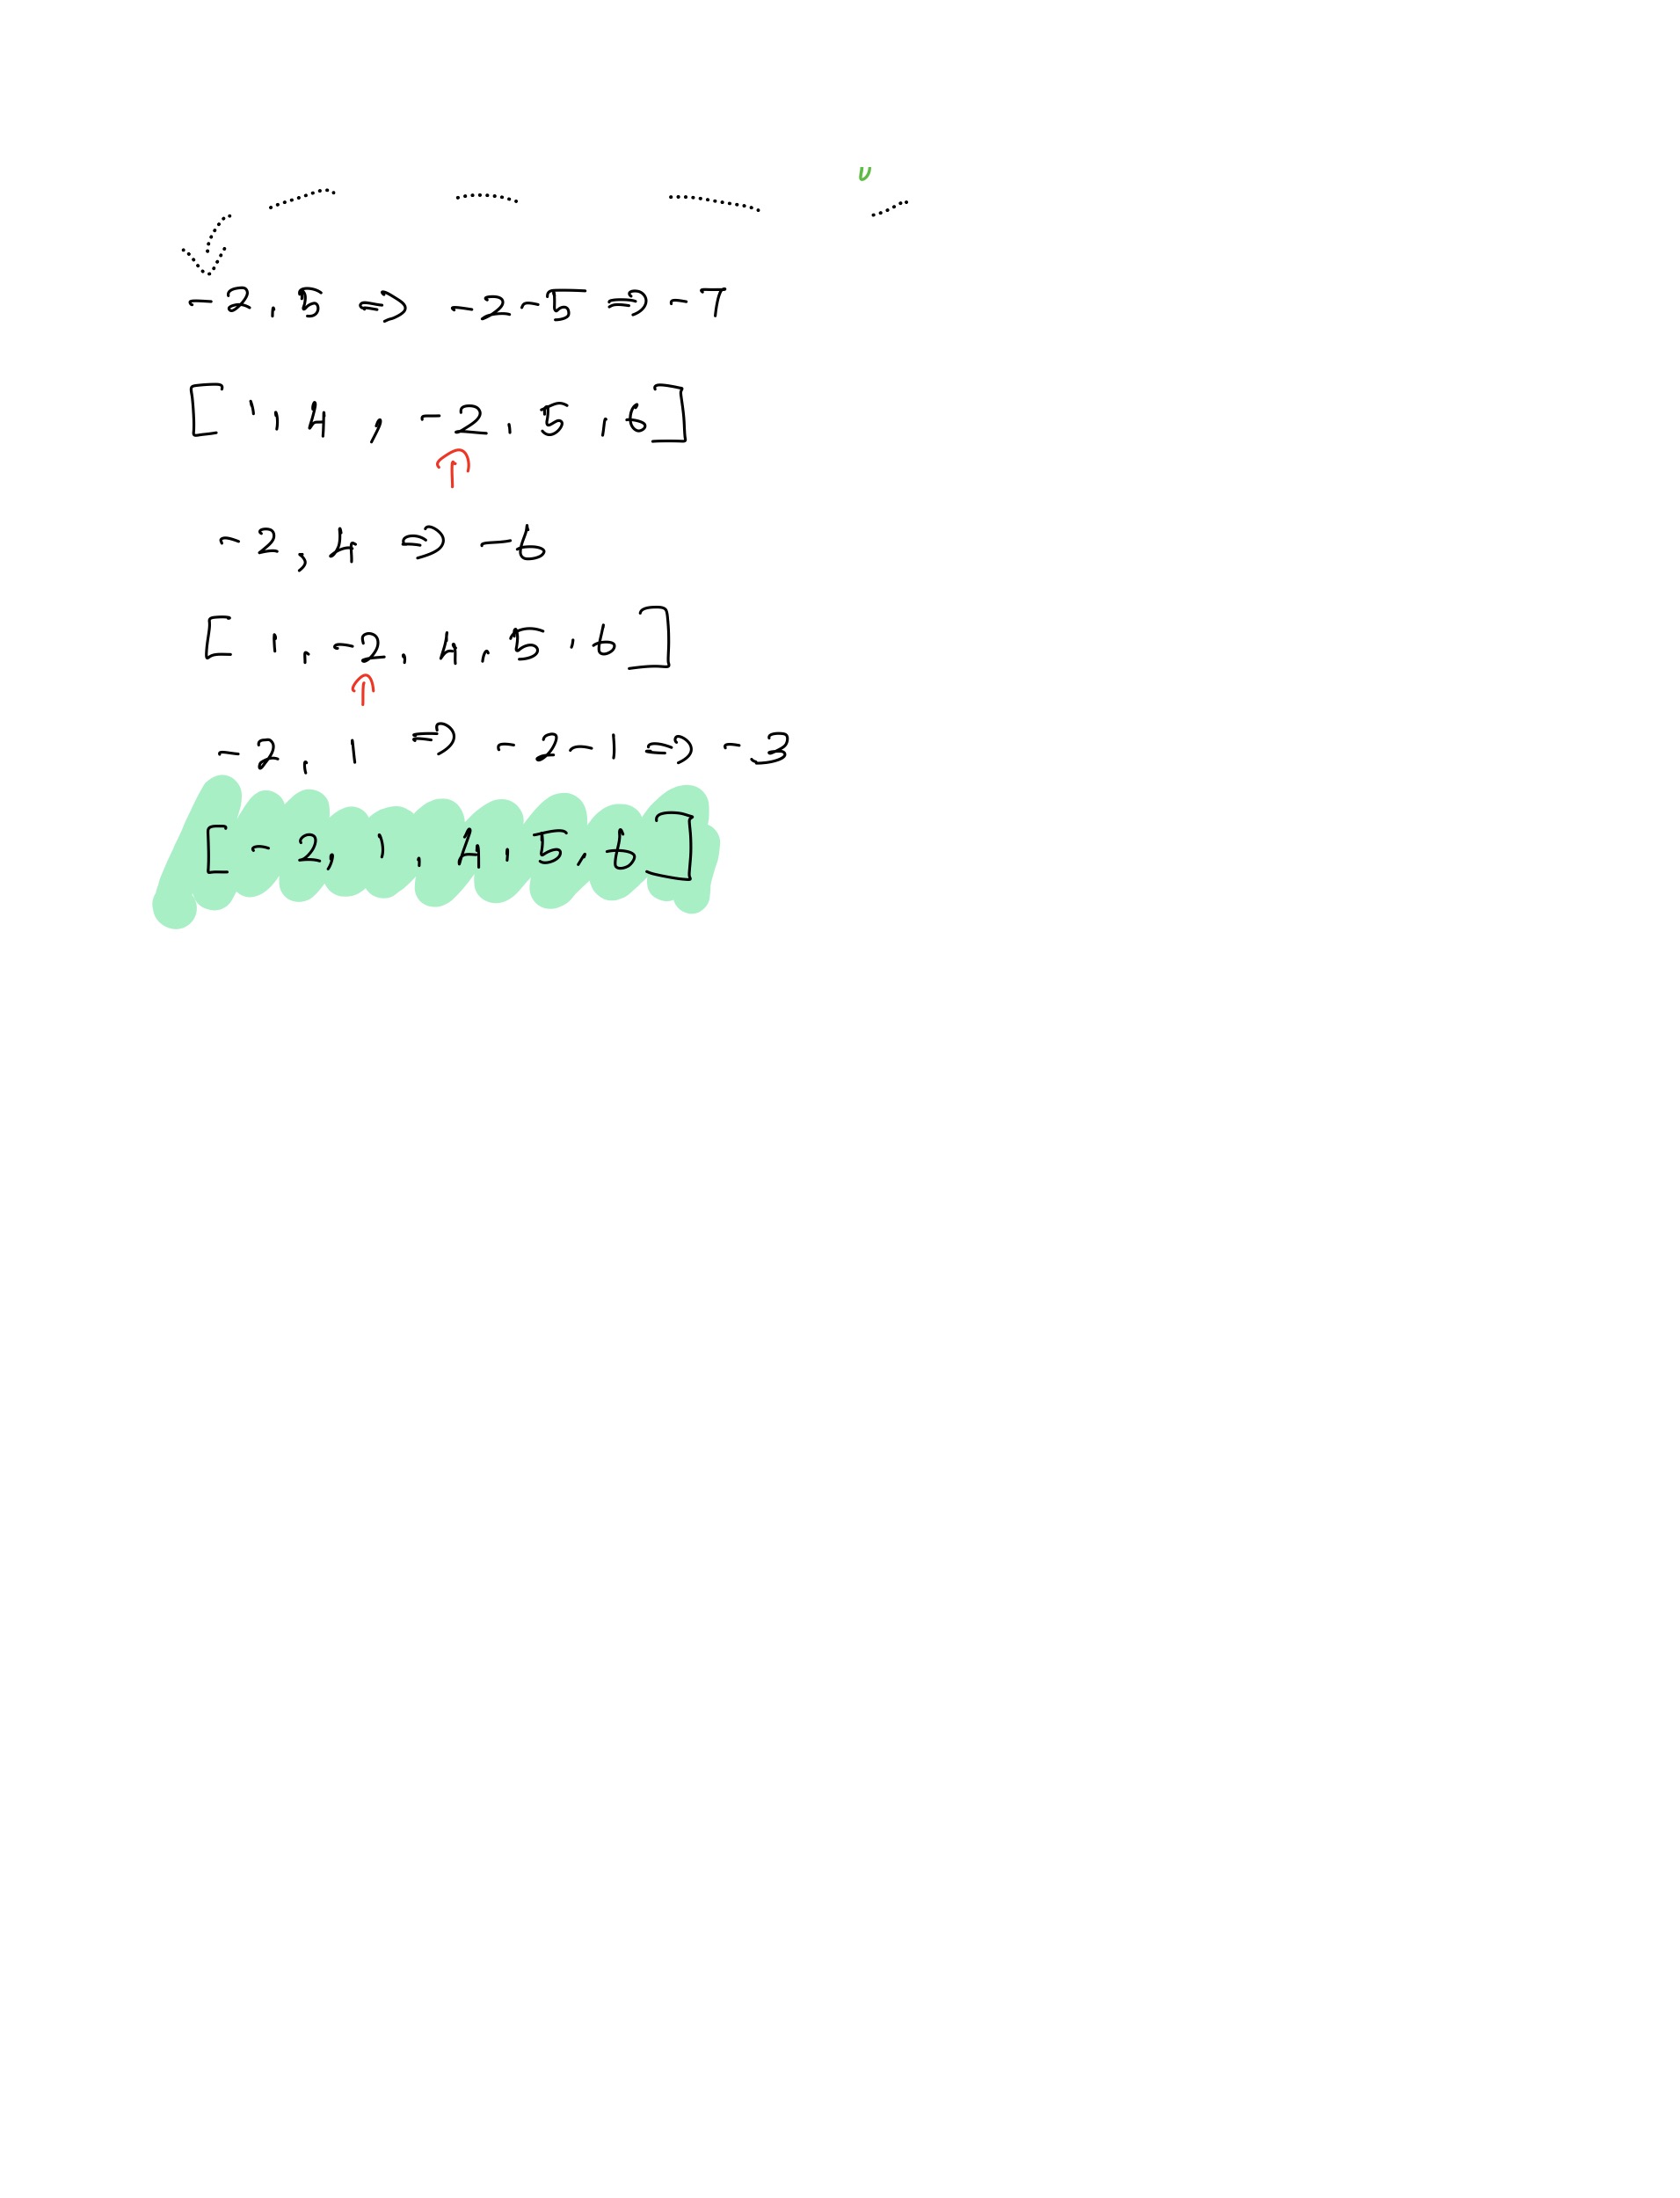 -2, 5 ⇒ -2-5 ⇒ -7
[ 1, 4, -2, 5, 6 ]
↑
-2, 4 ⇒ -6
[ 1, -2, 4, 5, 6 ]
↑
-2, 1 ⇒ -2-1 ⇒ -3
[ -2, 1, 4, 5, 6 ]